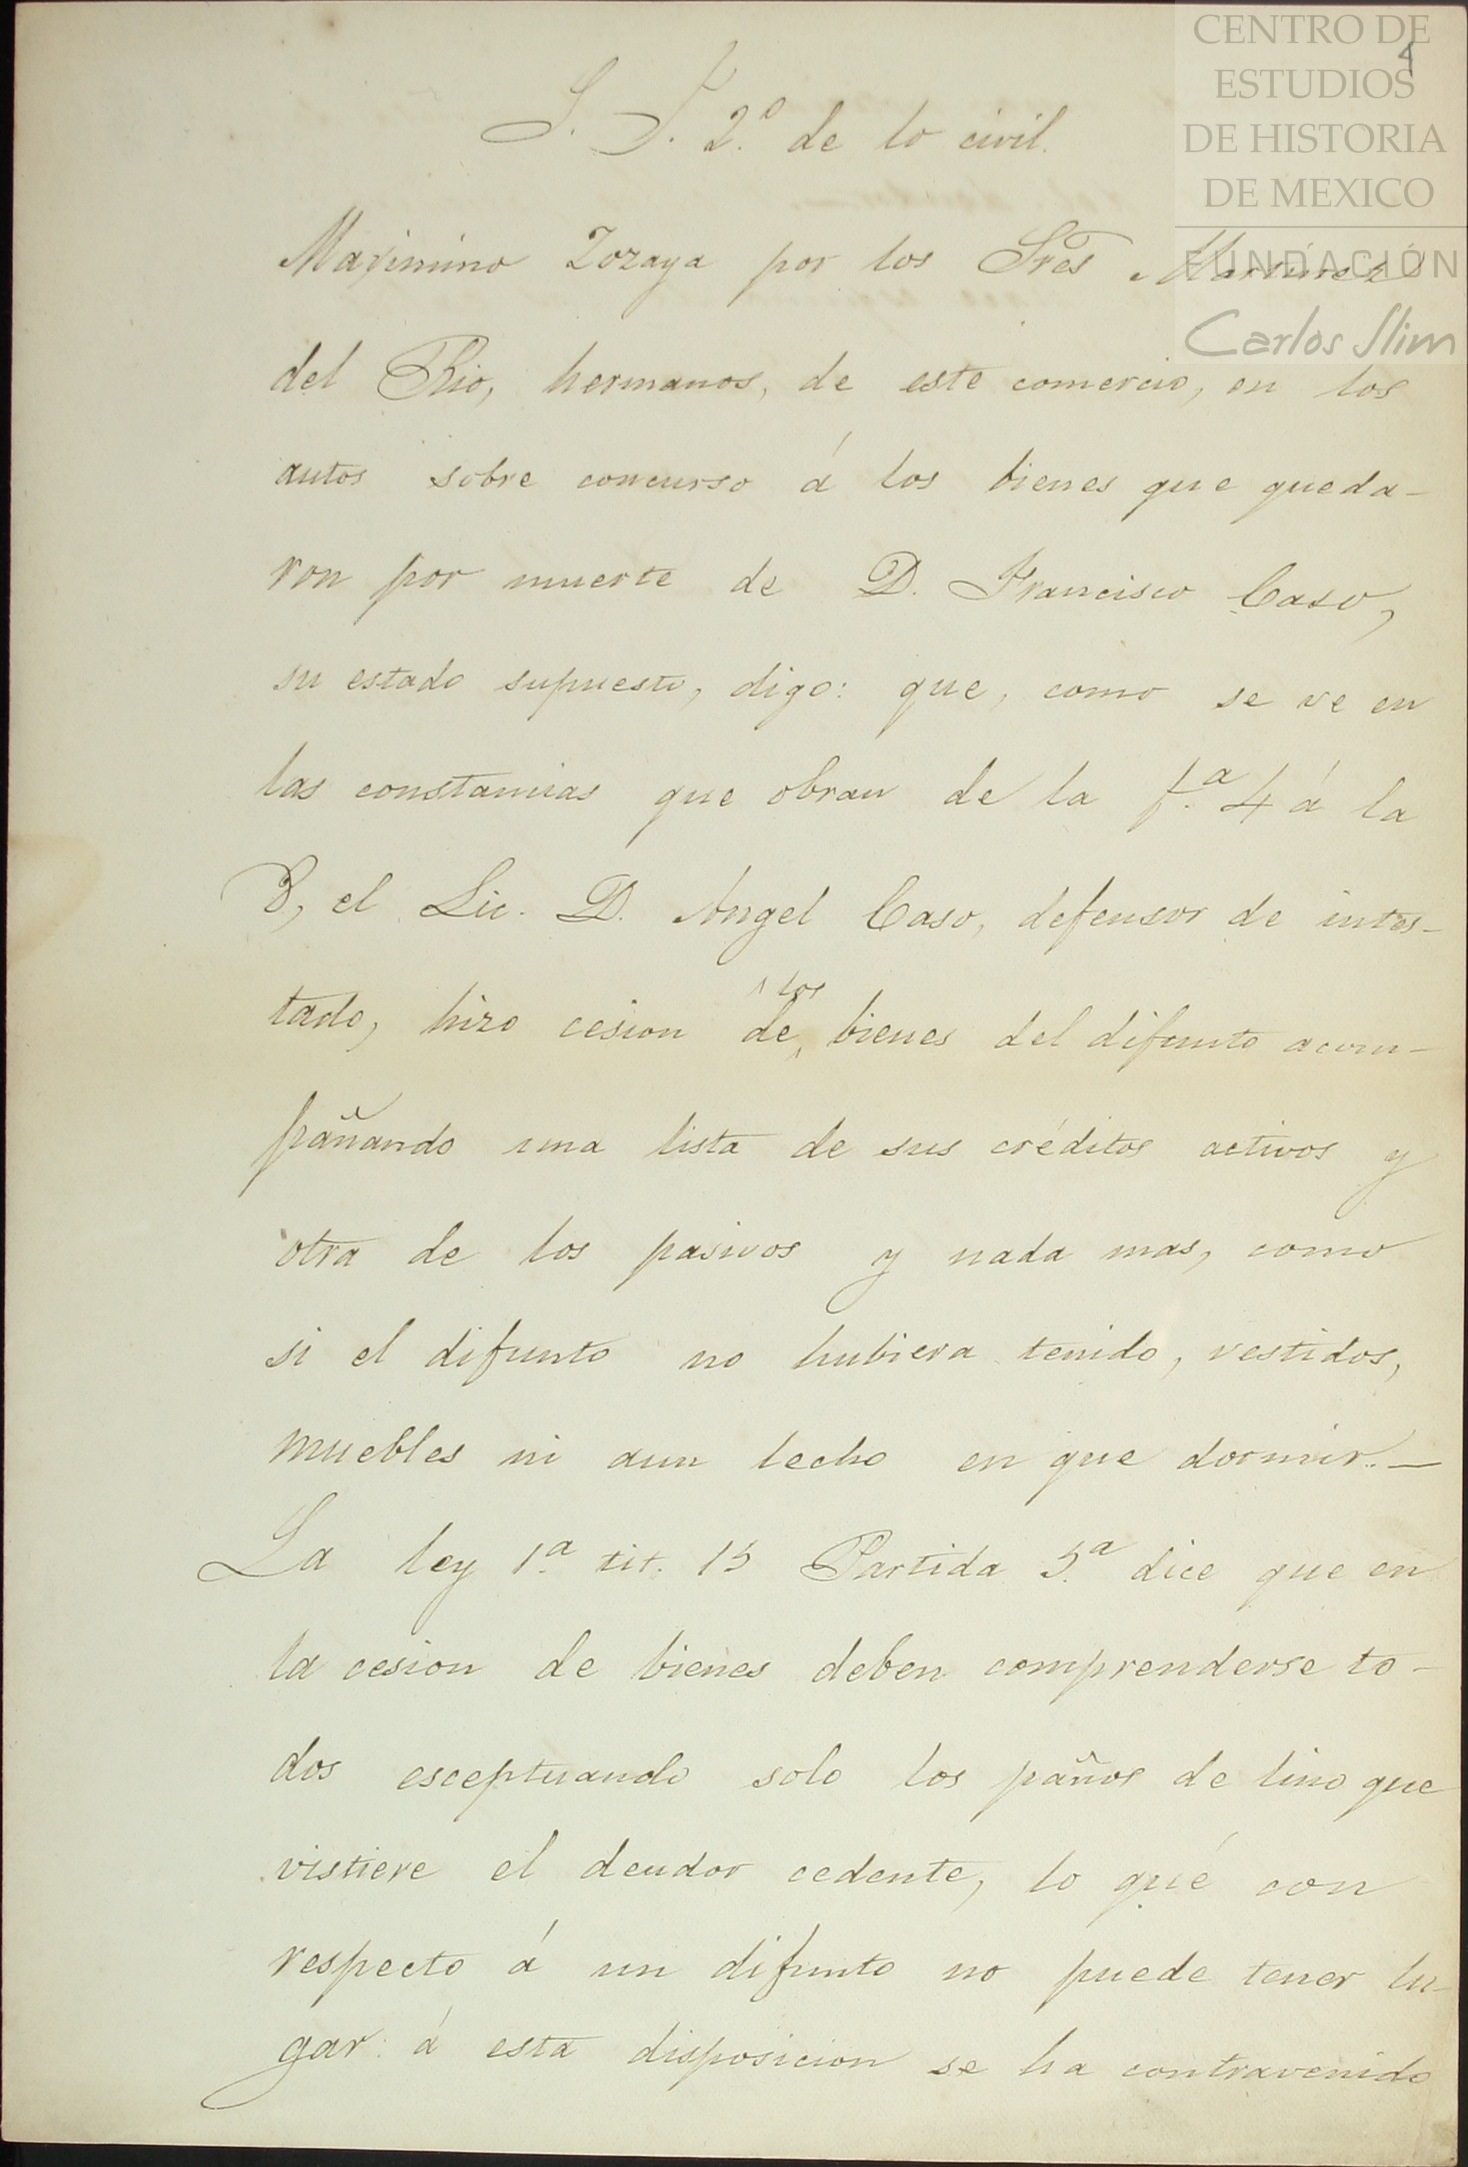 4
CENTRO DE
ESTUDIOS
DE HISTORIA
DE MEXICO
FUNDACIÓN
Carlos Slim
S. J. 2.º de lo civil.
Maximino Zozaya por los Sres Martinez
del Rio, hermanos, de este comercio, en los
autos sobre concurso á los bienes que queda-
ron por muerte de D. Francisco Caso,
su estado supuesto, digo: que, como se ve en
las constancias que obran de la f.ª 4 á la
8, el Lic. D. Angel Caso, defensor de intes-
tado, hizo cesion de los bienes del difunto acom-
pañando una lista de sus créditos activos y
otra de los pasivos y nada mas, como
si el difunto no hubiera tenido, vestidos,
muebles ni aun lecho en que dormir.—
La ley 1.ª tit. 15 Partida 5.ª dice que en
la cesion de bienes deben comprenderse to-
dos esceptuando solo los paños de lino que
vistiere el deudor cedente, lo qué con
respecto á un difunto no puede tener lu-
gar: á esta disposicion se ha contravenido